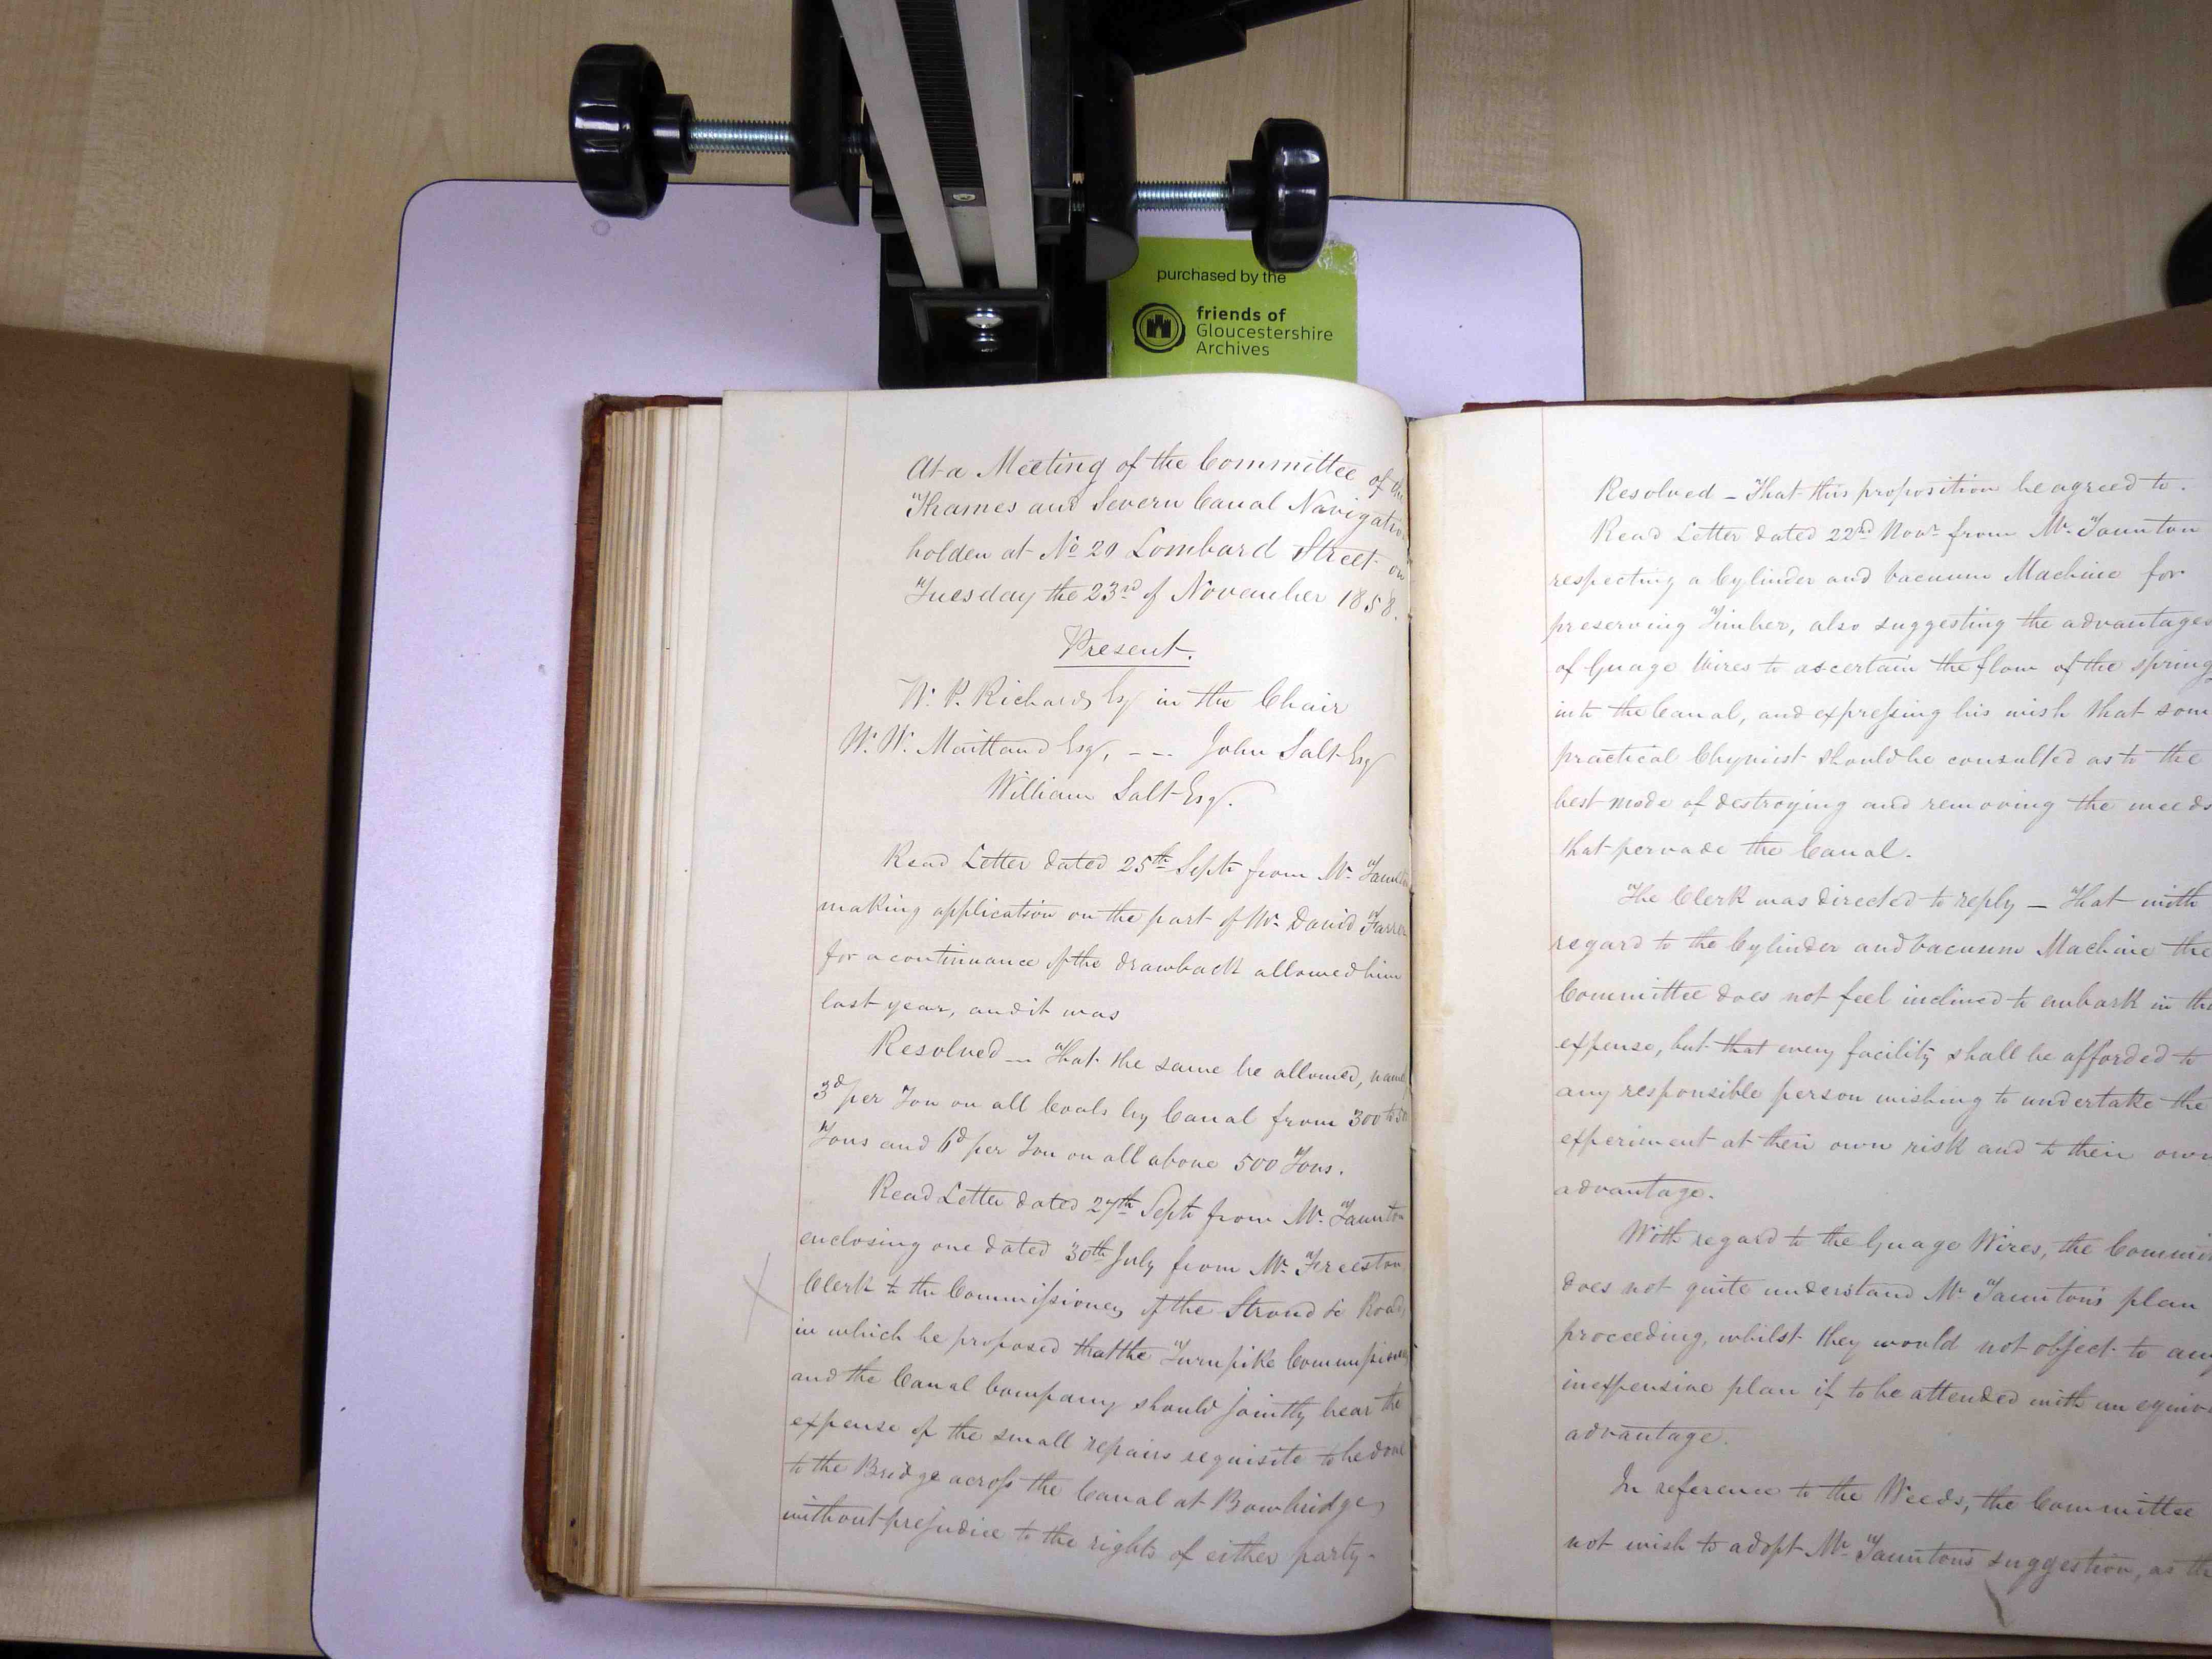 purchased by the
friends of
Gloucestershire
Archives
At a Meeting of the Committee of the
Thames and Severn Canal Navigation
holden at No 20 Lombard Street on
Tuesday the 23rd of November 1858.
Present.
W. P. Richards Esq in the Chair
W. W. Maitland Esq, -- John Salt Esq
William Salt Esq.
Read Letter dated 25th Septr from Mr. Taunton
making application on the part of Mr. David
for a continuance of the drawback allowed him
last year, and it was
Resolved -- That the same be allowed,
3d per Ton on all Coals by Canal from 300 to
Tons and 6d per Ton on all above 500 Tons.
Read Letter dated 27th Septr from Mr. Taunton
enclosing one dated 30th July from Mr. Freeston
Clerk to the Commissioners of the Stroud &c Roads
in which he proposed that the Turnpike Commissioners
and the Canal Company should jointly bear the
expense of the small repairs requisite to be done
to the Bridge across the Canal at Bowbridge,
without prejudice to the rights of either party.
Resolved - That this proposition be agreed to.
Read Letter dated 22nd Novr from Mr. Taunton
respecting a Cylinder and Vacuum Machine for
preserving Timber, also suggesting the advantages
of Guage Wires to ascertain the flow of the spring
into the Canal, and expressing his wish that som
practical Chymist should be consulted as to the
best mode of destroying and removing the weeds
that pervade the Canal.
The Clerk was directed to reply - That with
regard to the Cylinder and Vacuum Machine the
Committee does not feel inclined to embark in the
expense, but that every facility shall be afforded to
any responsible person wishing to undertake the
experiment at their own risk and to their own
advantage.
With regard to the Guage Wires, the Commit
does not quite understand Mr Taunton's plan
proceeding, whilst they would not object to any
inexpensive plan if to be attended with an equiv
advantage.
In reference to the Weeds, the Committee
not wish to adopt Mr Taunton's suggestion, as th